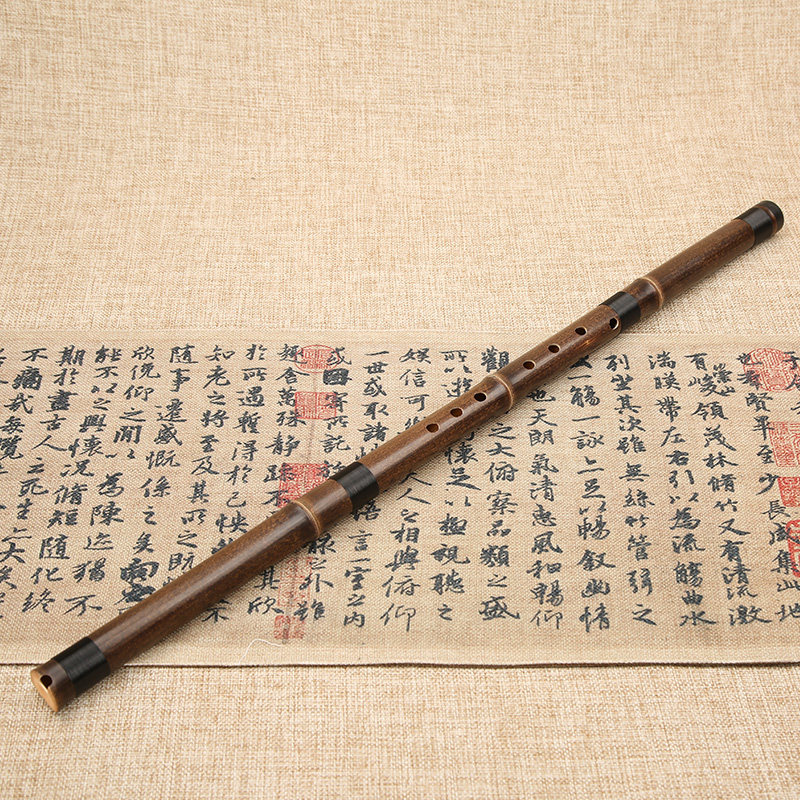 也羣賢畢至少長咸集此地
有崇山峻領茂林脩竹又有清流激
湍暎帶左右引以為流觴曲水
列坐其次雖無絲竹管弦之
一觴一詠亦足以暢敘幽情
也天朗氣清惠風和暢仰
觀之大俯察品類之盛
所以遊懷足以極視聽之
娛信可人之相與俯仰
一世或取諸悟言一室之內
或因寄所託骸之外雖
趣舍萬殊靜躁不其欣
於所遇暫得於己快
知老之將至及其所之既
隨事遷感慨係之矣向
欣俛仰之閒以為陳迹猶不
能不以之興懷況脩短隨化終
期於盡古人云死生亦大矣
不痛哉每攬